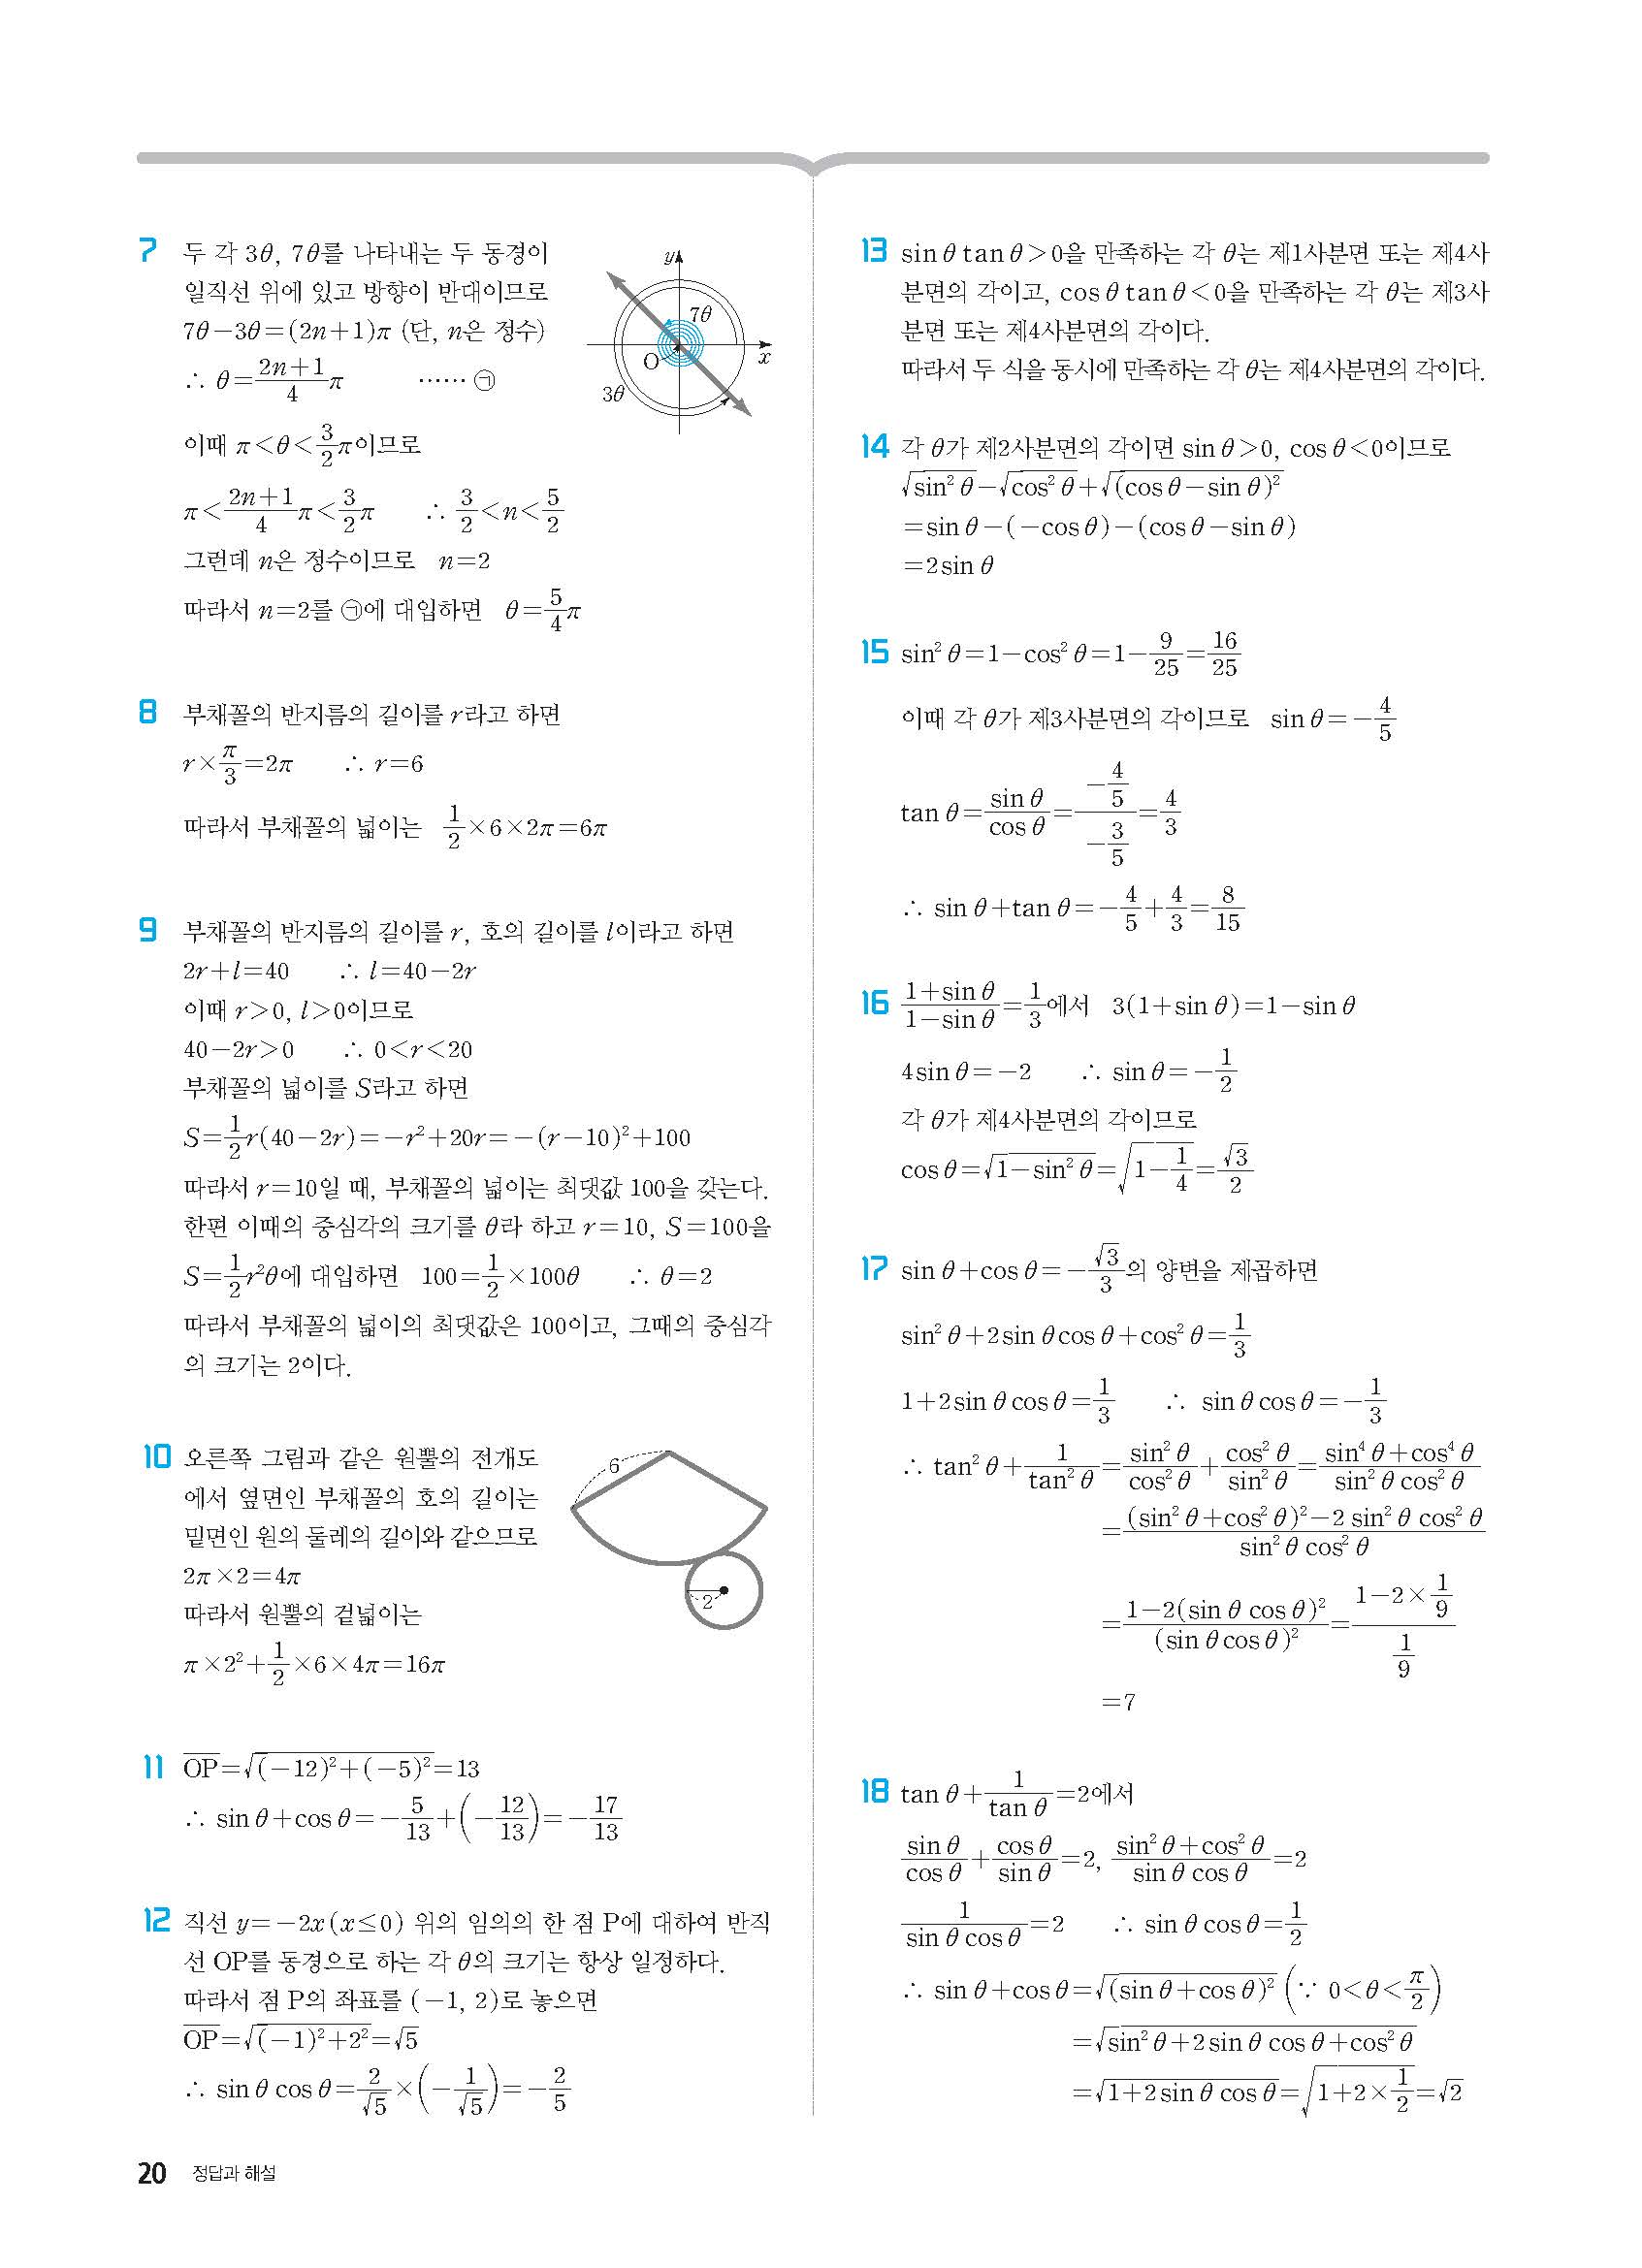 7 두 각 3θ, 7θ를 나타내는 두 동경이
일직선 위에 있고 방향이 반대이므로
7θ-3θ=(2n+1)π (단, n은 정수)
∴ θ=\frac{2n+1}{4}π ······ ㉠
이때 π<θ<\frac{3}{2}π이므로
π<\frac{2n+1}{4}π<\frac{3}{2}π ∴ \frac{3}{2}<n<\frac{5}{2}
그런데 n은 정수이므로 n=2
따라서 n=2를 ㉠에 대입하면 θ=\frac{5}{4}π
y
7θ
O
x
3θ
8 부채꼴의 반지름의 길이를 r라고 하면
r×\frac{π}{3}=2π ∴ r=6
따라서 부채꼴의 넓이는 \frac{1}{2}×6×2π=6π
9 부채꼴의 반지름의 길이를 r, 호의 길이를 l이라고 하면
2r+l=40 ∴ l=40-2r
이때 r>0, l>0이므로
40-2r>0 ∴ 0<r<20
부채꼴의 넓이를 S라고 하면
S=\frac{1}{2}r(40-2r)=-r²+20r=-(r-10)²+100
따라서 r=10일 때, 부채꼴의 넓이는 최댓값 100을 갖는다.
한편 이때의 중심각의 크기를 θ라 하고 r=10, S=100을
S=\frac{1}{2}r²θ에 대입하면 100=\frac{1}{2}×100θ ∴ θ=2
따라서 부채꼴의 넓이의 최댓값은 100이고, 그때의 중심각
의 크기는 2이다.
10 오른쪽 그림과 같은 원뿔의 전개도
에서 옆면인 부채꼴의 호의 길이는
밑면인 원의 둘레의 길이와 같으므로
2π×2=4π
따라서 원뿔의 겉넓이는
π×2²+\frac{1}{2}×6×4π=16π
6
2
11 \overline{OP}=\sqrt{(-12)²+(-5)²}=13
∴ sin θ+cos θ=-\frac{5}{13}+(-\frac{12}{13})=-\frac{17}{13}
12 직선 y=-2x(x≤0) 위의 임의의 한 점 P에 대하여 반직
선 OP를 동경으로 하는 각 θ의 크기는 항상 일정하다.
따라서 점 P의 좌표를 (-1, 2)로 놓으면
\overline{OP}=\sqrt{(-1)²+2²}=\sqrt{5}
∴ sin θ cos θ=\frac{2}{\sqrt{5}}×(-\frac{1}{\sqrt{5}})=-\frac{2}{5}
13 sin θ tan θ>0을 만족하는 각 θ는 제1사분면 또는 제4사
분면의 각이고, cos θ tan θ<0을 만족하는 각 θ는 제3사
분면 또는 제4사분면의 각이다.
따라서 두 식을 동시에 만족하는 각 θ는 제4사분면의 각이다.
14 각 θ가 제2사분면의 각이면 sin θ>0, cos θ<0이므로
\sqrt{sin² θ}-\sqrt{cos² θ}+\sqrt{(cos θ-sin θ)²}
=sin θ-(-cos θ)-(cos θ-sin θ)
=2sin θ
15 sin² θ=1-cos² θ=1-\frac{9}{25}=\frac{16}{25}
이때 각 θ가 제3사분면의 각이므로 sin θ=-\frac{4}{5}
tan θ=\frac{sin θ}{cos θ}=\frac{-\frac{4}{5}}{-\frac{3}{5}}=\frac{4}{3}
∴ sin θ+tan θ=-\frac{4}{5}+\frac{4}{3}=\frac{8}{15}
16 \frac{1+sin θ}{1-sin θ}=\frac{1}{3}에서 3(1+sin θ)=1-sin θ
4sin θ=-2 ∴ sin θ=-\frac{1}{2}
각 θ가 제4사분면의 각이므로
cos θ=\sqrt{1-sin² θ}=\sqrt{1-\frac{1}{4}}=\frac{\sqrt{3}}{2}
17 sin θ+cos θ=-\frac{\sqrt{3}}{3}의 양변을 제곱하면
sin² θ+2sin θcos θ+cos² θ=\frac{1}{3}
1+2sin θ cos θ=\frac{1}{3} ∴ sin θ cos θ=-\frac{1}{3}
∴ tan² θ+\frac{1}{tan² θ}=\frac{sin² θ}{cos² θ}+\frac{cos² θ}{sin² θ}=\frac{sin⁴ θ+cos⁴ θ}{sin² θ cos² θ}
=\frac{(sin² θ+cos² θ)²-2 sin² θ cos² θ}{sin² θ cos² θ}
=\frac{1-2(sin θ cos θ)²}{(sin θcos θ)²}=\frac{1-2×\frac{1}{9}}{\frac{1}{9}}
=7
18 tan θ+\frac{1}{tan θ}=2에서
\frac{sin θ}{cos θ}+\frac{cos θ}{sin θ}=2, \frac{sin² θ+cos² θ}{sin θ cos θ}=2
\frac{1}{sin θ cos θ}=2 ∴ sin θ cos θ=\frac{1}{2}
∴ sin θ+cos θ=\sqrt{(sin θ+cos θ)²} (∵ 0<θ<\frac{π}{2})
=\sqrt{sin² θ+2sin θ cos θ+cos² θ}
=\sqrt{1+2sin θ cos θ}=\sqrt{1+2×\frac{1}{2}}=\sqrt{2}
20 정답과 해설